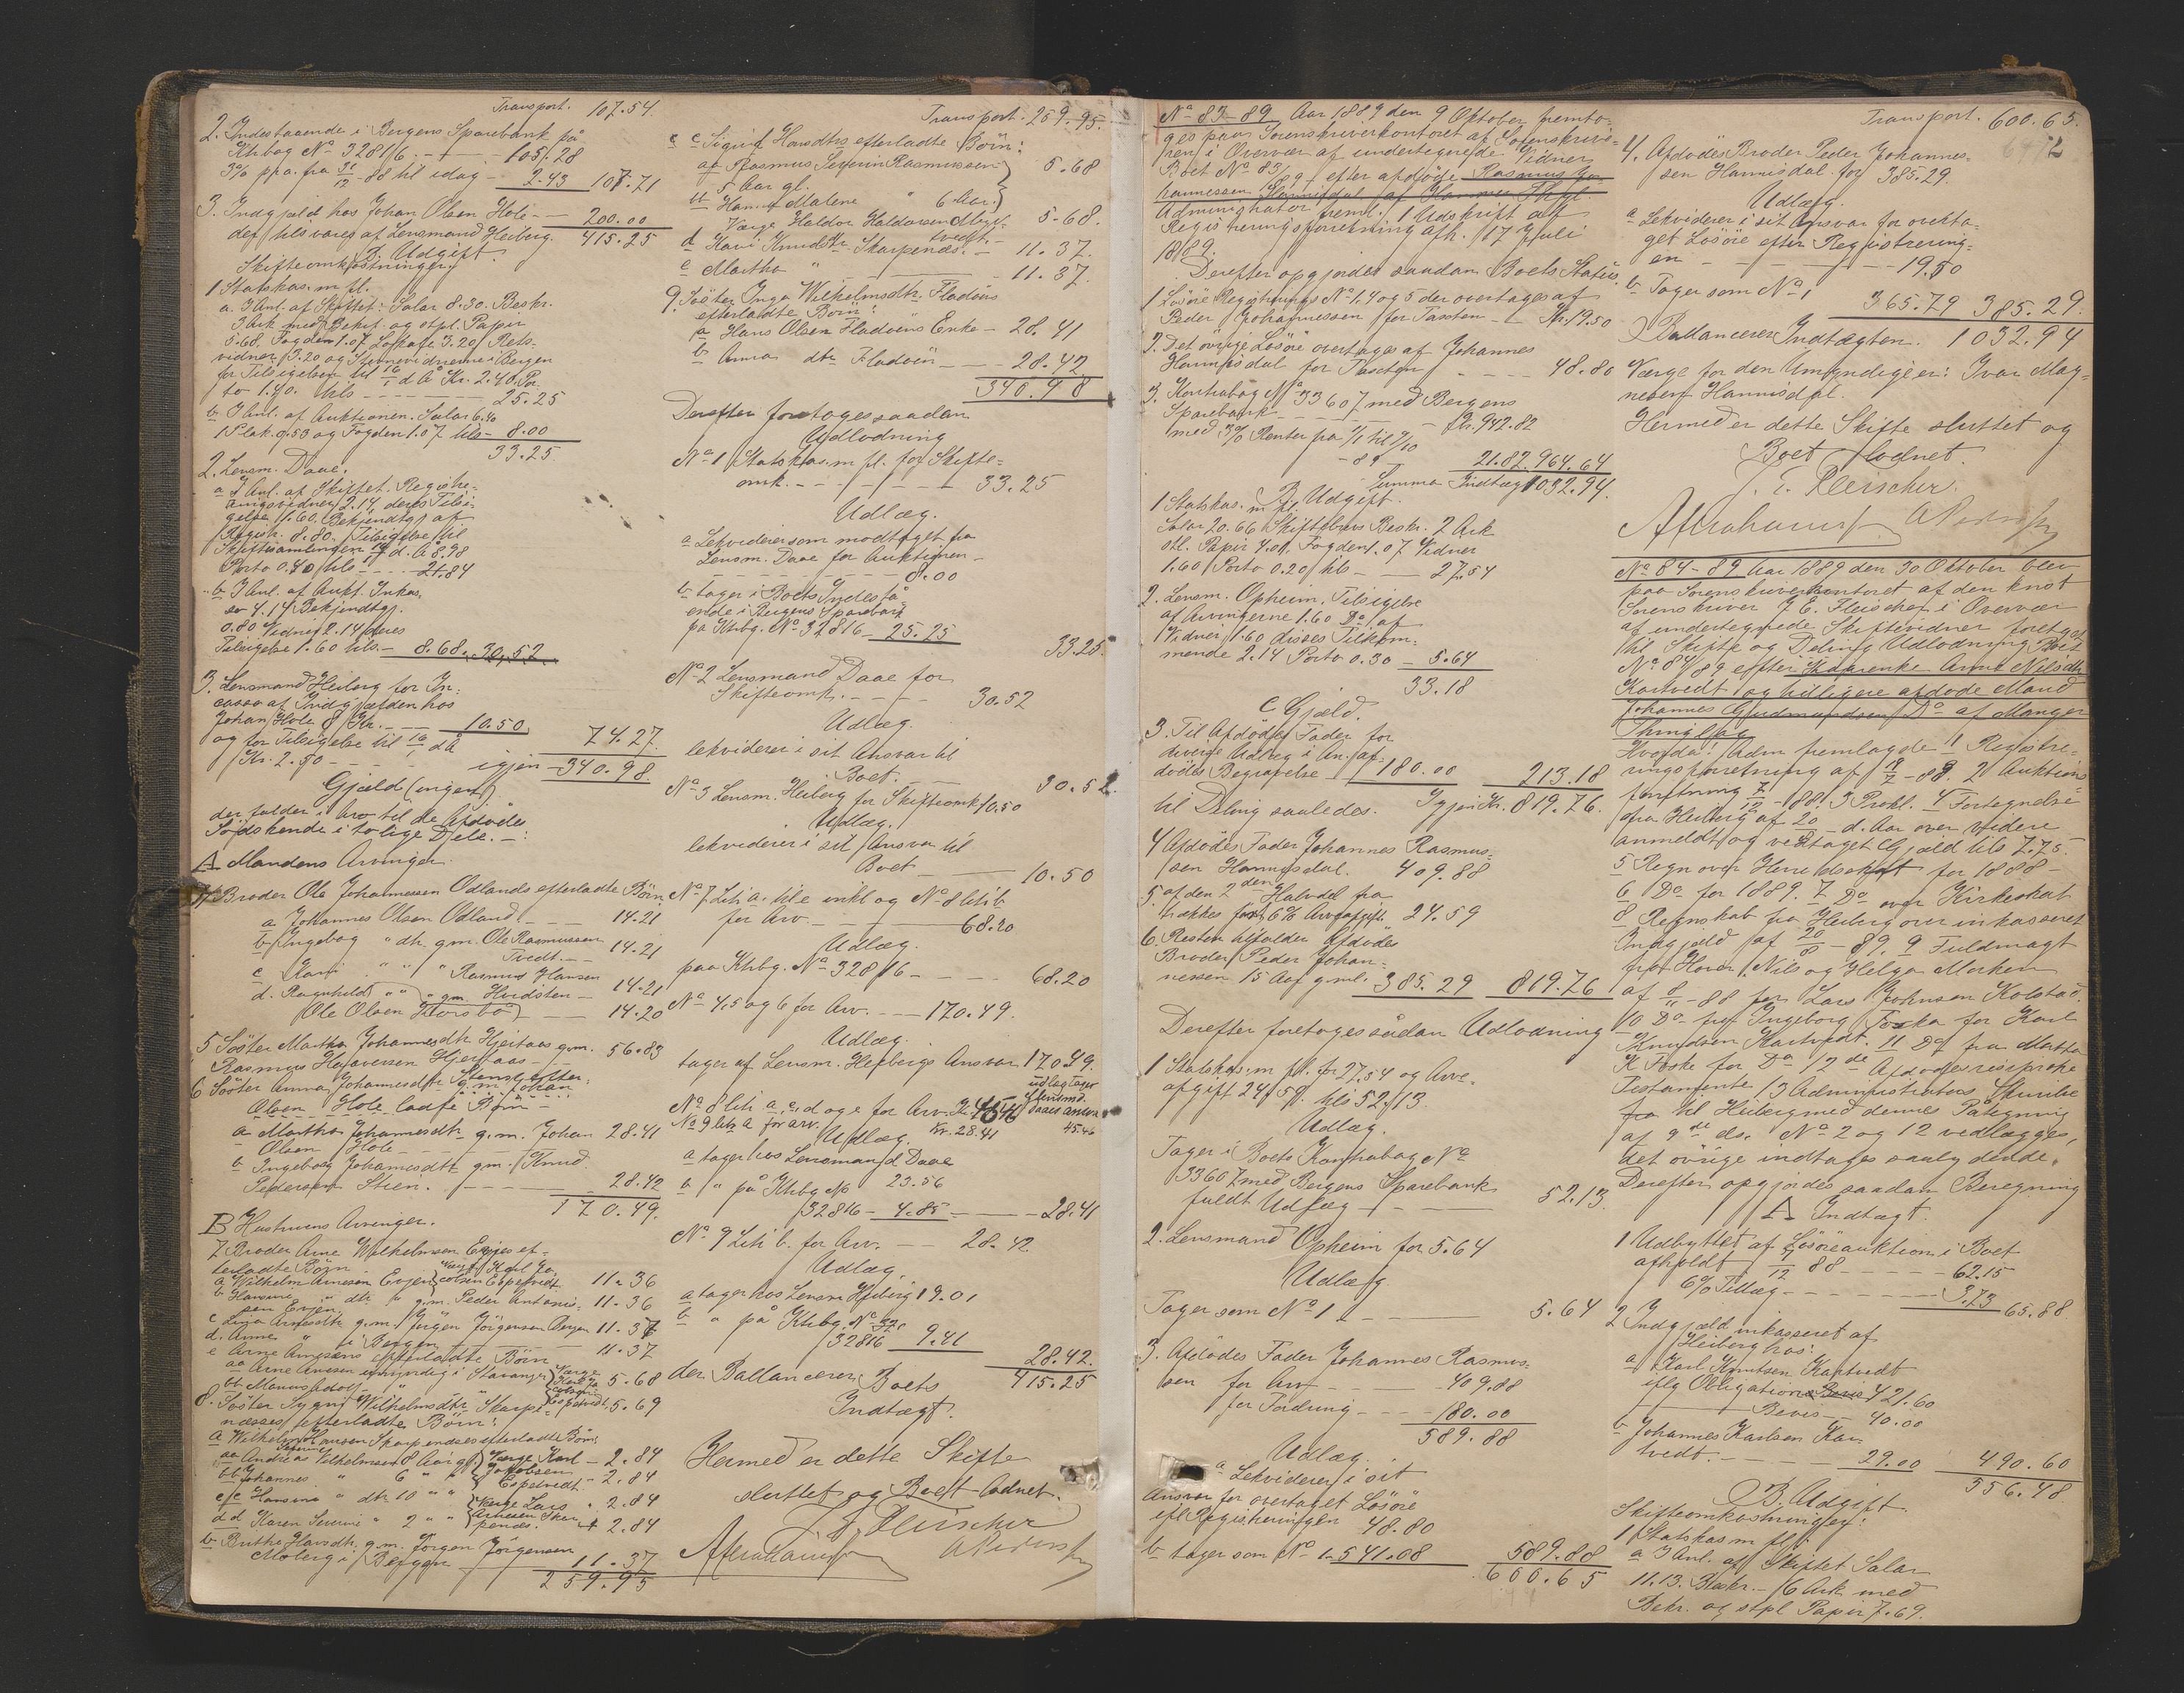 Transport. 107.54.
2. Indestaaende i Bergens Sparebank på
Ktrbog No 32816 - - - 105.28
3% p.a. fra 3/12 - 88 til idag - 2.43 107.71
3. Indgjeld hos Johan Olsen Hole - - 200.00
der tils vares af Lensmand Heiberg. 415.25
B. Udgift.
Skifteomkostninger.
1 Statskas. m. fl.
a. I Anl. af Skiftet: Salar 8.30. Beskr.
3 Ark med Bekr. og stpl. Papir
5.68. Fogden 1.07 Lokale 3.20 Rets-
vidner 3.20 og Stevnevidnerne i Bergen
for Tilsigelsen til 16/1 d Å Kr. 2.40. Por
to 1.40. tils - - - - 25.25
b. I Anl. af Auktionen. Salar 6.40
1 Plak. 0.53 og Fogden 1.07 tils - 8.00
33.25.
2. Lensm. Daae.
a I Anl. af Skiftet. Registre-
ringsvidner 2.14 deres Tilsi-
gelse 1.60. Bekjendtgj. af
Registr. 8.80. Tilsigelse til
Skiftesamlingen d. Å 8.98
Porto 0.40 tils - - - 21.84
b. I Anl. af Aukt. Inkas.
so 4.14 Bekjendtgj.
0.80 Vidner 2.14 deres
Tilsigelse 1.60 tils. - 8.68. 30.52
3. Lensmand Heiberg for In-
casso af Indgjælden hos
Johan Hole 8 Kr. - - 10.50.
og for Tilsigelse til 16/1 d å
Kr. 2.50 - - - 74.27.
igjen - 340.98.
Gjæld (ingen).
der falder i Arv til de Afdødes
Sødskende i to lige Dele. - :
A Mandens Arvinger.
4 Broder Ole Johannessen Odlands efterladte Börn
a Johannes Olsen Odland - - 14.21
b Ingebog " dtr. g.m. Ole Rasmussen
Tvedt. - - 14.21
c Kari " " " Rasmus Hansen
Hvidsten - 14.21
d. Ragnhild " " g.m.
Ole Olsen - - 14.20
5 Söster Martha Johannesdtr. Hjertaas g.m.
Rasmus Hjertaas - 56.83
6 Söster Anna Johannesdtr.
g.m. Johan
Olsen Hole Börn -
a Martha Johannesdtr. g.m. Johan
Olsen Hole - - - 28.41
b Ingeborg Johannesdtr. g.m. Knud
Pedersen Stien. - - - 28.42
170.49.
B Hustruens Arvinger.
7 Broder Arne Wilhelmsen Evjes ef-
terladte Börn.
a Wilhelm Arnesen Evjen 11.36
dtr. g.m. Peder Antonis-
sen Evjen. 11.36
c Arnesdtr g.m. Jørgen Jörgensen Bergen 11.37
d. Anne " i Bergen 11.37
e Arne Arnesens efterladte Börn
aa Arne Arnesen umyndig i Stavanger 5.68
bb 5.69
8. Söster Wilhelmsdtr. Skarpe-
næsses efterladte Börn:
a Wilhelm Hansen Skarpenæses efterladte Börn:
aa Andreas Wilhelmsen 8 Aar gl. Værge Karl - 2.84
bb Johannes " 6 " " Jakobsen Espetvedt - 2.84
cc Hansine " dtr 10 " " Værge Lars " 2.84
dd Karen Severine " 2 " " 2.84
b Brithe Hansdtr. g.m. Jörgen Jörgensen
Moberg i Bergen 11.37
259.95
Transport. 259.95.
c Sigrid Hansdtrs. efterladte Börn:
aa Rasmus Severin Rasmussen
5 Aar gl. 5.68
bb Malene " 6 Aar.
Værge Haldor Haldorsen 5.68.
d Kari Knudsdtr. Skarpenæs. - 11.37.
e Martha " - 11.37.
9. Söster Inga Wilhelmsdtr. Fladöens
efterladte Börn:
a Hans Olsen Fladöens Enke - 28.41
b Anna dtr. Fladöen - - 28.42
340.98
Derefter foretoges saadan
Udlodning
No 1 Statskas. m. fl. for Skifte-
omk. - - - - 33.25
Udlæg.
a Lekviderer som modtaget fra
Lensm. Daae for Auktionen -
- - - 8.00
b tager i Boets Indestå-
ende i Bergens Sparebank
på Ktrbg. No 32816 - 25.25 33.25.
No 2 Lensmand Daae for
Skifteomk. - - - 30.52
Udlæg.
lekviderer i sit Ansvar til
Boet. 30.52
No 3 Lensm. Heiberg for Skifteomk 10.50
Udlæg.
lekviderer i sit Ansvar til
Boet - - 10.50
No 7 Litr. a. til e inkl og No 8 litr. b
for Arv. - - - 68.20
Udlæg.
paa Ktrbg. No 32816 - - - 68.20
No 4, 5 og 6 for Arv. - - - 170.49.
Udlæg.
tager af Lensm. Heibergs Ansvar 170.49.
No 8 litr. a, c, d og e for Arv. Kr. 45.46 udlæg tager
af Lensmd.
Daaes ansvar
45.46
No 9 litr a for arv. Kr. 28.41
Udlæg.
a tager hos Lensmand Daae
23.56
b " på Ktrbg No
32816 - 4.85 - - - 28.41
No 9 Litr b. for Arv. - 28.42
Udlæg.
a tager hos Lensm Heiberg 19.01
b " på Ktrbg. No
32816 9.41
28.42.
der Ballancerer Boets 415.25
Indtægt.
Hermed er dette Skifte
sluttet og Boet lodnet.
Fleischer
No 83-89 Aar 1889 den 9 Oktober fremto-
ges paa Sorenskriverkontoret af Sorenskrive-
ren i Overvær af undertegnede Vidner
Boet No 83/89 efter afdøde Rasmus Jo-
hannessen Hannisdal af
Administrator freml. 1 Udskrift af
Registreringsforretning afh. 17 Juli
1889.
Derefter opgjordes saadan Boets Status.
1 Lösöre Registrerings No 1.4 og 5 der overtages af
Peder Johannessen for Taxten - Kr. 19.50
2. Det övrige Lösöre overtages af Johannes
Hannisdal for Taxten - - - 48.80
3. Kontrabog No 33607 med Bergens
Sparebank - - - Kr. 942.82
med 3% Renter fra 1/1 til 9/10
- 89 - 21.82. 964.64
Summa Indtægt 1032.94.
B. Udgift.
1 Statskas. m. fl.
Salar 20.66 Skiftebrevs Beskr. 2 Ark
stl. Papir 4.01. Fogden 1.07 Vidner
1.60 Porto 0.20 tils - - 27.54
2. Lensm. Opheim. Tilsigelse
af Arvingerne 1.60 Do af
Vidner 1.60 disses Tilkom-
mende 2.14 Porto 0.30 - 5.64
33.18
C Gjæld.
3. Til Afdödes Fader for
diverse Udlæg i An. af af-
dödes Begravelse 180.00 213.18
Igjen Kr. 819.76.
til Deling saaledes.
4 Afdödes Fader Johannes Rasmus-
sen Hannisdal. 409.88
5. af den 2den Halvdel fra
trækkes först 6% Arveafgift 24.59
6. Resten tilfalder Afdödes
Broder Peder Johan-
nessen 15 Aar gml. 385.29 819.76
Derefter foretoges sådan Udlodning
1 Statskas. m. fl. for 27.54 og Arve-
afgift 24.59. tils 52.13.
Udlæg.
Tager i Boets Kontrabog No
33607 med Bergens Sparebank
fuldt Udlæg - - - 52.13.
2. Lensmand Opheim for 5.64
Udlæg.
Tager som No 1 - - - 5.64
3. Afdödes Fader Johannes Rasmus-
sen for Arv - - - 409.88
for Fordring - - - 180.00
589.88
Udlæg
a Lekviderer i sit
Ansvar for overtaget Lösöre
ifl Registreringen 48.80
b tager som No 1 - 541.08 589.88
600.65
Transport. 600.65.
4. Afdödes Broder Peder Johannes-
sen Hannisdal for 385.29.
Udlæg.
a Lekviderer i sit Ansvar for overta-
get Lösöre efter Registrering-
en - - - - 19.50
b Tager som No 1 365.79 385.29.
Ballancerer Indtægten. 1032.94
Værge for den Umyndige er: Ivar Mag-
nesen Hannisdal.
Hermed er dette Skifte sluttet og
Boet lodnet.
J. E. Fleischer.
No 84-89 Aar 1889 den 30 Oktober blev
paa Sorenskriverkontoret af den knst
Sorenskriver J. E. Fleischer i Overvær
af undertegnede Skiftevidner foretaget
til Skifte og Deling Udlodning Boet
No 84/89 efter Kaarenke Anna Nilsdtr.
Kartvedt og tidligere afdøde Mand
Johannes Gudmundsen Do af Manger
Thinglag
Hvorda! Adm fremlagde 1 Registre-
ringsforretning af 9/7 - 88. 2 Auktions
forretning 7/12 - 88. 3 Prokl. 4 Fortegnelse
fra Heiberg af 20/ - d. Aar over videre
anmeldt og vedtaget Gjæld tils 7.75.
5 Regn over Herredsskat for 1888 -
6 Do for 1889. 7. Do over Kirkeskat
8 Regnskab fra Heiberg over inkasseret
Indgjæld af 20/8 - 89. 9 Fuldmagt
fra Nils og Helga Morken
af 8/11 - 88 for Lars Johnsen Kolstad.
10 Do fra Ingeborg Foska for Karl
Knudsen Kartvedt. 11 Do fra Martha
K Foske for Do 12de Afdødes resiproke
Testamente 13 Administrators Skrivelse
fra til Heiberg med dennes Paategning
af 9de ds. No 2 og 12 vedlægges,
det övrige indtages saalydende.
Derefter opgjordes saadan Beregning
A Indtægt.
1 Udbyttet af Lösöreauktion i Boet
afholdt 7/12 88 - - - 62.15
6% Tillæg - - - 3.73 65.88
2 Indgjæld inkasseret af
Heiberg hos:
a Karl Knutsen Kartvedt
iflg Obligation 421.60
Bevis - 40.00
b Johannes Karlsen Kar-
tvedt. - - - 29.00 490.60
556.48
B. Udgift.
Skifteomkostninger:
1 Statskas m fl
a I Anl. af Skiftet Salar
11.13. Beskr. - 6 Ark med
Bekr. og stpl Papir 7.69.